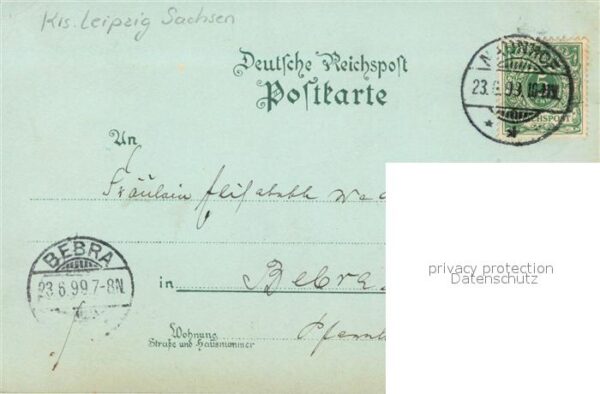 Krs. Leipzig Sachsen
Deutsche Reichspost
Postkarte
23.6.99.
5
REICHSPOST
An
Fräulein Elisabeth
BEBRA
23.6.99 7-8N.
in Bebra
Wohnung
Straße und Hausnummer
privacy protection
Datenschutz